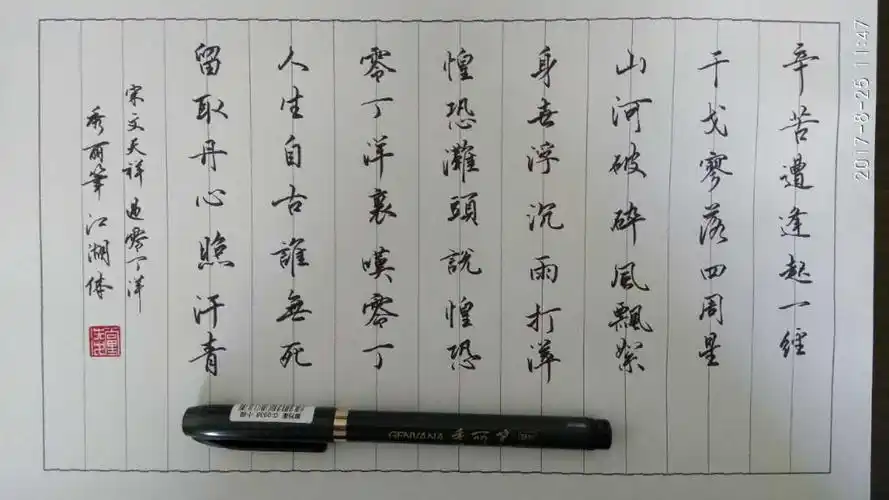 辛苦遭逢起一經
干戈寥落四周星
山河破碎風飄絮
身世浮沉雨打萍
惶恐灘頭說惶恐
零丁洋裏嘆零丁
人生自古誰無死
留取丹心照汗青
宋文天祥過零丁洋
秀丽筆江湖体
GENVANA 秀丽笔
2017-8-25 11:47